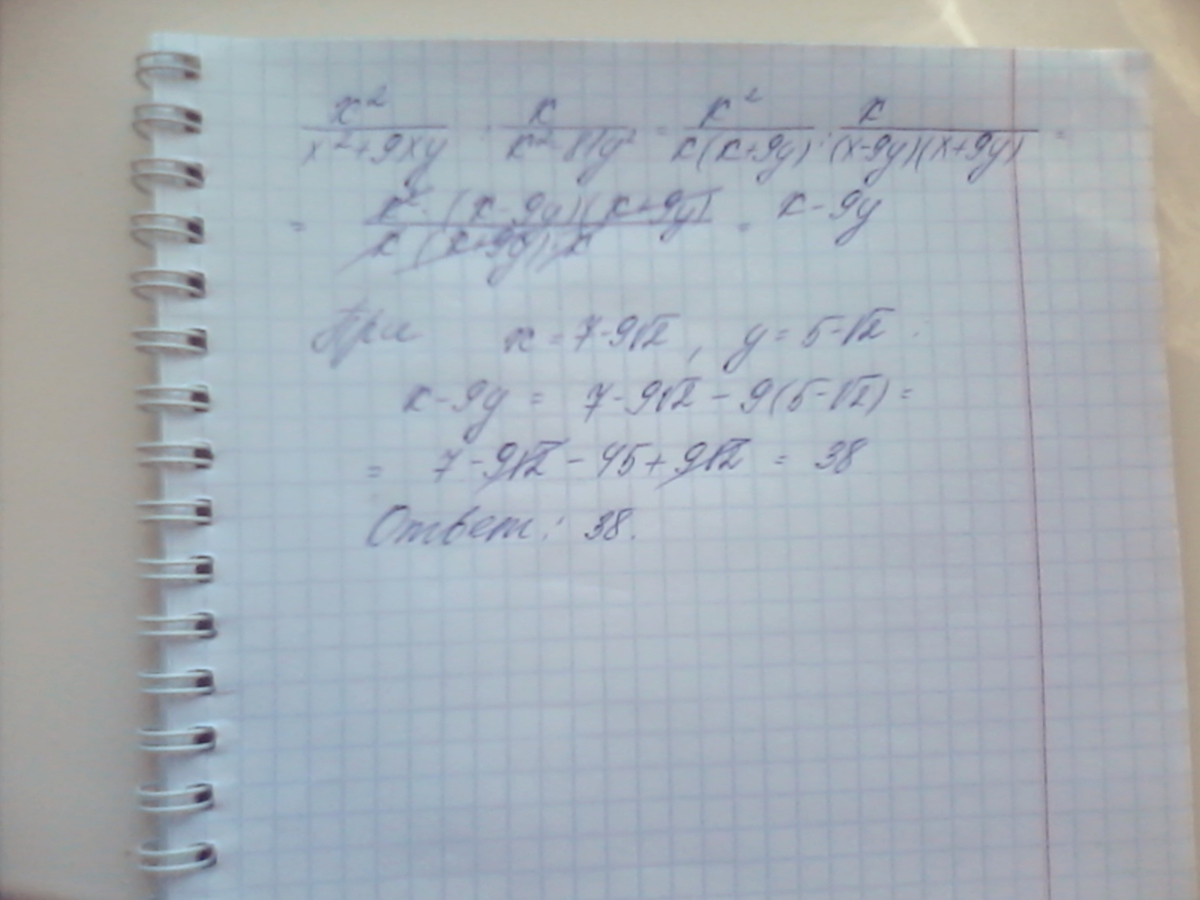 x²/(x²+9xy) : x/(x²-81y²) = x²/(x(x+9y)) : x/((x-9y)(x+9y)) =
= x²·(x-9y)(x+9y)/(x(x+9y)·x) = x-9y
При x=7-9√2, y=5-√2.
x-9y = 7-9√2-9(5-√2)=
= 7-9√2-45+9√2 = 38
Ответ: 38.